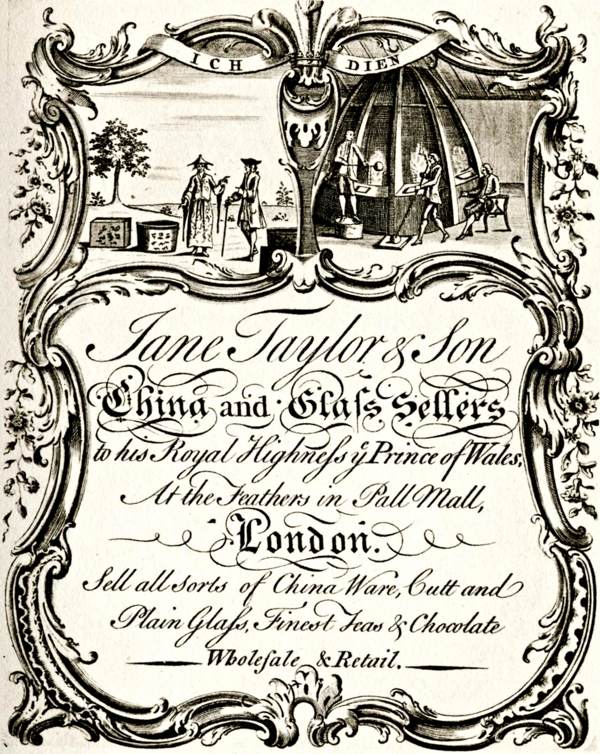 ICH DIEN
Jane Taylor & Son
China and Glaſs Sellers
to his Royal Highneſs yᵉ Prince of Wales,
At the Feathers in Pall Mall,
London.
Sell all sorts of China Ware, Cutt and
Plain Glaſs, Finest Teas & Chocolate
Wholeſale & Retail.